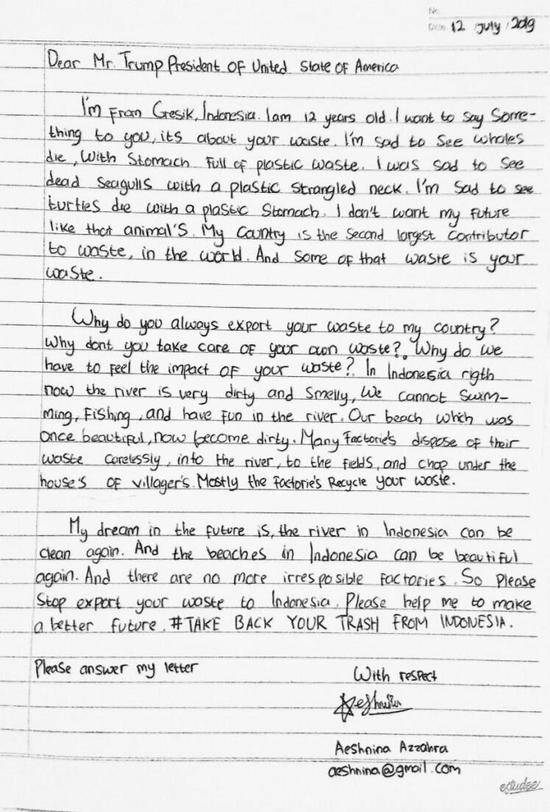 No.
Date 12 July 2019
Dear Mr. Trump President Of United State of America
I'm From Gresik, Indonesia. I am 12 years old. I want to say Some-
thing to you, its about your waste. I'm sad to see whales
die, with Stomach full of plastic waste. I was sad to see
dead Seagulls with a plastic strangled neck. I'm sad to see
turtles die with a plastic Stomach. I don't want my future
like that animal's. My country is the second largest contributor
to waste, in the world. And some of that waste is your
waste.
Why do you always export your waste to my country?
Why dont you take care of your own waste?, Why do we
have to feel the impact of your waste? In Indonesia rigth
now the river is very dirty and smelly, we cannot swim-
ming, fishing, and have fun in the river. Our beach which was
once beautiful, now become dirty. Many Factorie's dispose of their
waste carelessly, into the river, to the fields, and chop under the
house's of villager's. Mostly the factorie's Recycle your waste.
My dream in the future is, the river in Indonesia can be
clean again. And the beaches in Indonesia can be beautiful
again. And there are no more irresposible factories. So Please
Stop export your waste to Indonesia. Please help me to make
a better future. #TAKE BACK YOUR TRASH FROM INDONESIA.
Please answer my letter
With respect
Aeshnina Azzahra
aeshnina@gmail.com